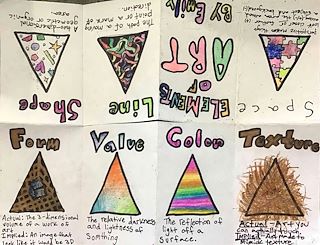 Shape
A two-dimensional
geometric or organic
area.
Line
The path of a moving
point or a mark of
direction.
ELEMENTS
OF
ART
BY Emily
Space
Form
Actual: The 3-dimensional
volume of a work of
art
Implied: An image that
look like it would be 3D
Value
The relative darkness
and lightness of
somthing
Color
The reflection of
light off a
surface.
Texture
Actual - Art you
can actually feel
Implied - Art made to
mimic texture